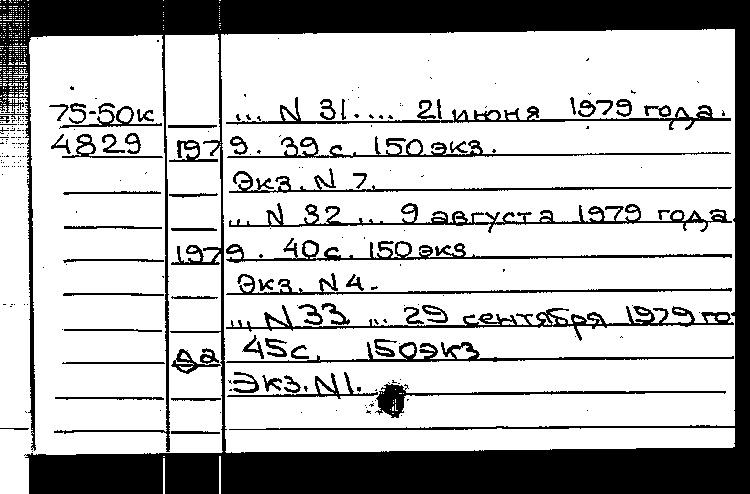 75-50к ... N 31. ... 21 июня 1979 года.
4829 1979. 39 с. 150 экз.
Экз. N 7.
... N 32 ... 9 августа 1979 года.
1979. 40 с. 150 экз.
Экз. N 4.
... N 33 ... 29 сентября 1979 го
да 45 с. 150 экз
Экз. N 1.